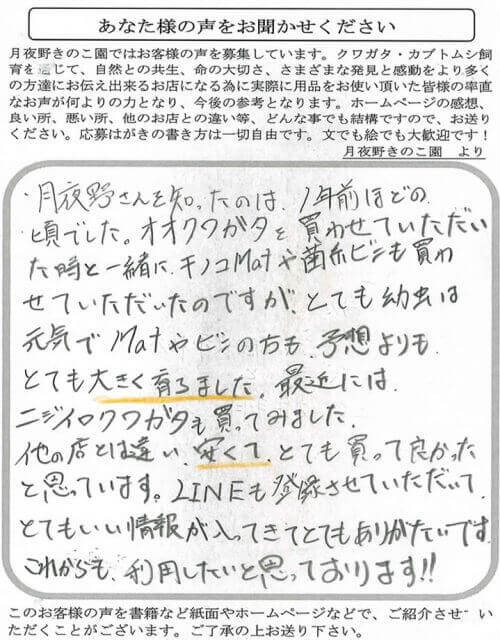 あなた様の声をお聞かせください
月夜野きのこ園ではお客様の声を募集しています。クワガタ・カブトムシ飼
育を通じて、自然との共生、命の大切さ、さまざまな発見と感動をより多く
の方達にお伝え出来るお店になる為に実際に用品をお使い頂いた皆様の率直
なお声が何よりの力となり、今後の参考となります。ホームページの感想、
良い所、悪い所、他のお店との違い等、どんな事でも結構ですので、お送り
ください。応募はがきの書き方は一切自由です。文でも絵でも大歓迎です！
月夜野きのこ園　より
月夜野さんを知ったのは、1年前ほどの
頃でした。オオクワガタを買わせていただい
た時と一緒に、キノコMatや菌糸ビンも買わ
せていただいたのですが、とても幼虫は
元気でMatやビンの方も、予想よりも、
とても大きく育ちました。最近には、
ニジイロクワガタも買ってみました。
他の店とは違い、安くて、とても買って良かった
と思っています。LINEも登録させていただいて、
とてもいい情報が入ってきてとてもありがたいです。
これからも、利用したいと思っております!!
このお客様の声を書籍など紙面やホームページなどで、ご紹介させい
ただくことがございます。ご了承の上お送り下さい。